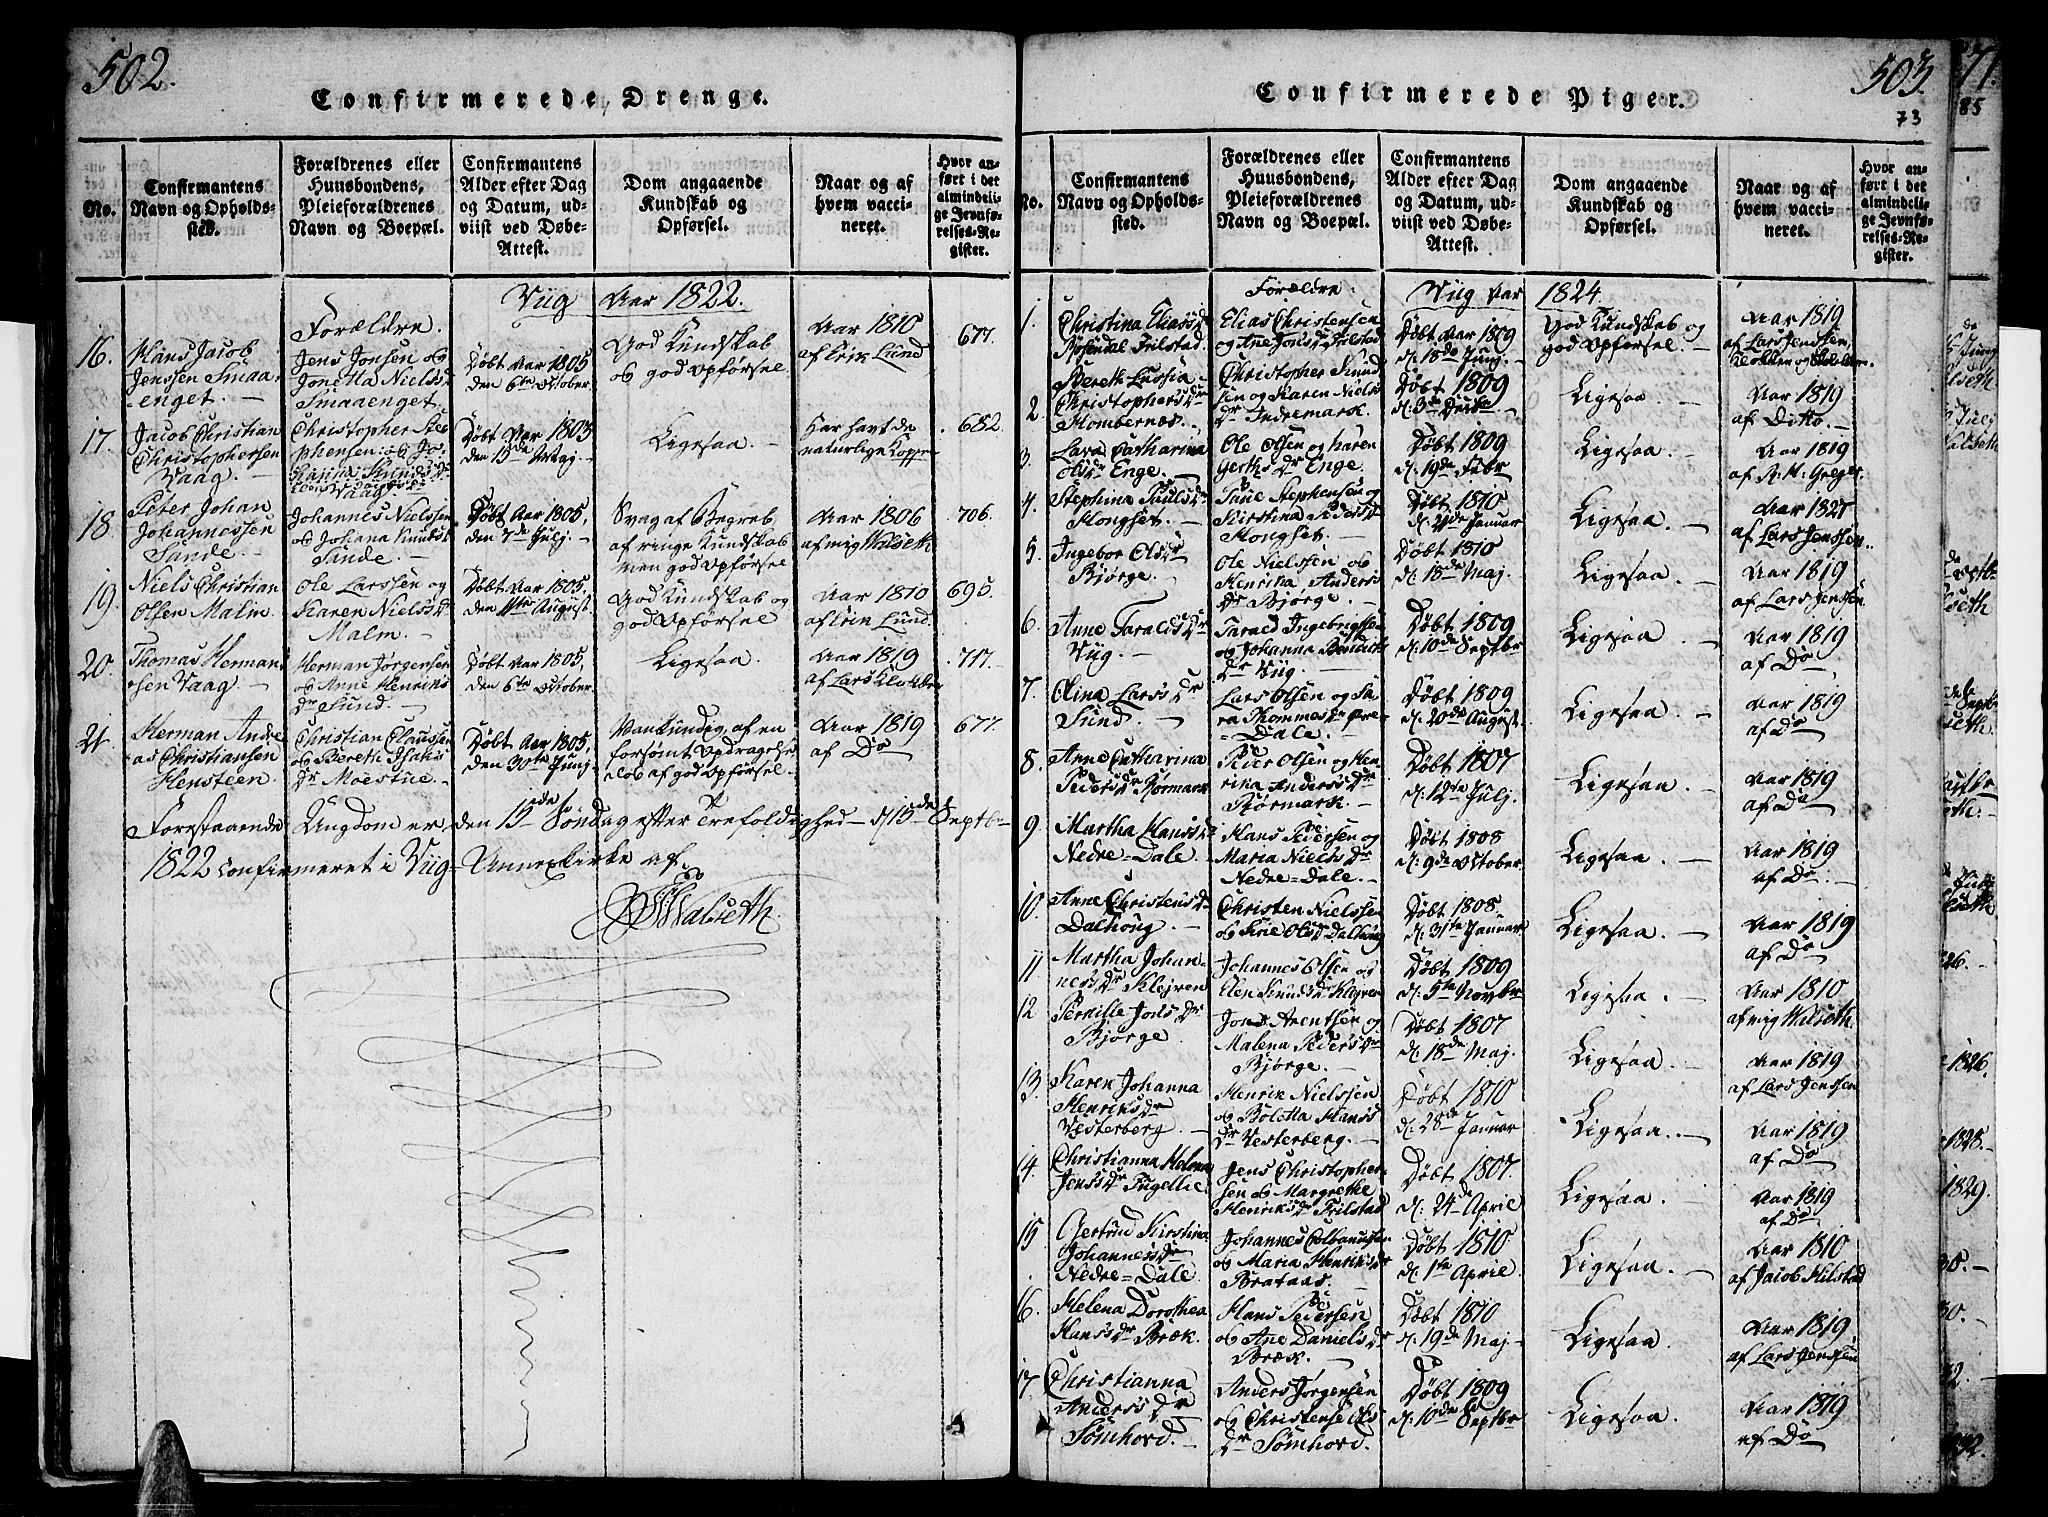 502.
Confirmerede Drenge.
No.
Confirmantens Navn og Opholdssted.
Forældrenes eller Huusbondens, Pleieforældrenes Navn og Boepæl.
Confirmantens Alder efter Dag og Datum, udviist ved Døbe-Attest.
Dom angaaende Kundskab og Opførsel.
Naar og af hvem vaccineret.
Hvor anført i det almindelige Jevnførelses-Register.
Viig Aar 1822.
Forældre.
16. Hans Jacob
Jenssen Smaa-
enget.
Jens Jonsen og
Jonetta Nielsd
Smaaenget.
Døbt Aar 1805
den 6te October
God Kundskab
og god Opførsel
Aar 1810
af Erik Lund
677.
17. Jacob Christian
Christophersen
Vaag.
Christopher Ste-
phensen og Jo-
Vaag
Døbt Aar 1803
den 15de Maj.
Ligesaa.
Har havt de
naturlige Kopper
682.
18. Peter Johan
Johannessen
Sande.
Johannes Nielssen
og Johana Knudsd
Sande.
Døbt Aar 1805,
den 7de Julj.
Svag af Begreb
af ringe Kundskab
men god Opførsel
Aar 1806
af mig Walseth
706.
19. Niels Christian
Olsen Malm.
Ole Larssen og
Karen Nielsdr
Malm.
Døbt Aar 1805.
den 11te August.
God Kundskab og
god Opførsel
Aar 1810
af Erik Lund.
695.
20. Thomas Herman-
sen Vaag.
Herman Jørgensen
og Anne Henriks
Dr Sund.
Døbt Aar 1805,
den 6te October.
Ligesaa.
Aar 1819
af Lars Klokker
717.
21. Herman Andre
as Christiansen
Hensteen.
Christian Claussen
og Bereth Isaks
Dr Moestue.
Døbt Aar 1805,
den 30te Junj.
Vankundig, af en
forsømt Opdragelse
og af god Opførsel.
Aar 1819
af Do
677.
Forestaaende Ungdom er den 15de Søndag efter Trefoldighed d 15de Septbr
1822 confirmeret i Viig Annexkirke af
Walseth.
503.
73
Confirmerede Piger.
No.
Confirmantens Navn og Opholdssted.
Forældrenes eller Huusbondens, Pleieforældrenes Navn og Boepæl.
Confirmantens Alder efter Dag og Datum, udviist ved Døbe-Attest.
Dom angaaende Kundskab og Opførsel.
Naar og af hvem vaccineret.
Hvor anført i det almindelige Jevnførelses-Register.
Forældre.
Viig Aar 1824.
1. Christina Eliasdr
Rosendal Trilstad.
Elias Christensen
og Ane Jonsdr Trilstad
Døbt Aar 1809
d. 18de Junj.
God Kundskab og
god Opførsel.
Aar 1819
af Lars Jenssen,
2. Bereth Lussia
Christophersdr
Hombernæs.
Christopher Knud
sen og Karen Niels
Dr Indremark.
Døbt 1809
Ligesaa
Aar 1819
af Ditto
3. Lava Catharina
Olsdr Enge.
Ole Olsen og Karen
Gertsdr Enge.
Døbt 1809
d. 19de Febr
Ligesaa
Aar 1819
af R. H. Greger
4. Stephina Paulsdr
Hongset.
Paul Stephensen og
Kirstina Pedersdr
Hongset.
Døbt 1810
d. 21de Januar
Ligesaa
Aar 1821
af Lars Jenssen.
5. Ingebor Olsdr
Bjørge.
Ole Nielssen og
Henrika Anders
Dr Bjørge.
Døbt 1810
d. 18de Maj.
Ligesaa.
Aar 1819
af Lars Jenssen
6. Anne Taraldsdr
Viig.
Tarald Ingebrigtsen
og Johanna Bendicts
Dr Viig
Døbt 1809
d. 10de Septbr
Ligesaa.
Aar 1819
af Do
7. Olina Larsdr
Sund.
Lars Olsen og Sa
ra Thommesdr Øvre-
Dale.
Døbt 1809
d. 20de August.
Ligesaa.
Aar 1819
af Do
8. Anne Catharina
Pedersdr Rørmark
Peder Olsen og Hen
rika Andersdr
Rørmark.
Døbt 1807
d. 12te Julj.
Ligesaa.
Aar 1819
af Do
9. Martha Hansdr
Nedre-Dale.
Hans Pedersen og
Maria Nielsdr
Nedre-Dale.
Døbt 1808
d. 9de October
Ligesaa.
Aar 1819
af Do.
10. Anne Christensdr
Dalhoug.
Christen Nielssen
og Sirie Olsdr Dalhoug
Døbt 1808.
d. 31te Januar
Ligesaa.
Aar 1819
af Do
11 Martha Johan-
nesdr Klejven
Johannes Olsen og
Elen Knudsdr Klejven
Døbt 1809
d. 5te Novbr
Ligesaa.
Aar 1810
af mig Walseth.
12 Pernille Jonsdr
Bjørge.
Jon Arentsen og
Malena Pedersdr
Bjørge.
Døbt 1807
d. 18de Maj.
Ligesaa.
Aar 1819
af Lars Jenssen
13. Karen Johanna
Henriksdr
Vesterberg.
Henrik Nielssen
og Boletta Hans
Dr Vesterberg.
Døbt 1810
d. 28de Januar
Ligesaa.
Aar 1819
af Do
14. Christianna Helena
Jensdr
Jens Christopher-
sen og Margrethe
Henriksdr Trilstad
Døbt 1807
d. 24de Aprile
Ligesaa.
Aar 1819
af Do
15 Gertrud Kirstina
Johannesdr
Nedre-Dale.
Johannes Colbanussen
og Maria Henriksdr
Brataas.
Døbt 1810
d. 1te Aprile.
Ligesaa.
Aar 1810
af Jacob Hilstad
16. Helena Dorothea
Hansdr Bræk.
Hans Pedersen
og Ane Danielsdr
Bræk.
Døbt 1810
d. 19de Maj.
Ligesaa.
Aar 1819
af Lars Jenssen
17 Christianna
Andersdr
Sømhovd.
Anders Jørgensen
og Christense Ols
Dr Sømhovd.
Døbt 1809
d. 10de Septbr
Ligesaa.
Aar 1819
af Do
85